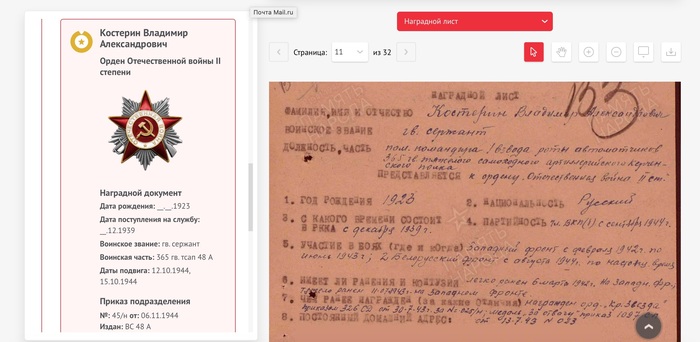 Почта Mail.ru
Костерин Владимир
Александрович
Орден Отечественной войны II
степени
Наградной документ
Дата рождения: __.__.1923
Дата поступления на службу:
__.12.1939
Воинское звание: гв. сержант
Воинская часть: 365 гв. тсап 48 А
Даты подвига: 12.10.1944,
15.10.1944
Приказ подразделения
№: 45/н от: 06.11.1944
Издан: ВС 48 А
Наградной лист
Страница: 11 из 32
НАГРАДНОЙ ЛИСТ
153
ФАМИЛИЯ, ИМЯ И ОТЧЕСТВО Костерин Владимир Александрович
ВОИНСКОЕ ЗВАНИЕ гв. сержант
ДОЛЖНОСТЬ, ЧАСТЬ пом. командира 1 взвода роты автоматчиков
365 гв тяжелого самоходного артиллерийского
полка
ПРЕДСТАВЛЯЕТСЯ к ордену „Отечественная война II ст"
1. ГОД РОЖДЕНИЯ 1923 2. НАЦИОНАЛЬНОСТЬ Русский
3. С КАКОГО ВРЕМЕНИ СОСТОИТ
В РККА с декабря 1939г. 4. ПАРТИЙНОСТЬ чл. ВКП(б) с 1944г.
5. УЧАСТИЕ В БОЯХ (где и когда) Западный фронт с февраля 1942г. по
июль 1943г; 2 Белорусский фронт с августа 1944г. по
6. ИМЕЕТ ЛИ РАНЕНИЯ И КОНТУЗИИ легко ранен 6 марта 1942г. на Запад. фр;
тяжело ранен 1943г. на Западном фронте
7. ЧЕМ РАНЕЕ НАГРАЖДЕН (за какие отличия) награжден орд. „Кр. Звезда"
приказ
8. ПОСТОЯННЫЙ ДОМАШНИЙ АДРЕС: от